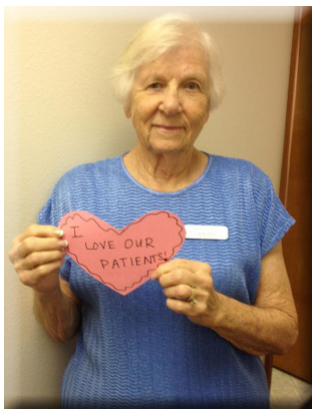 I
LOVE OUR
PATIENTS!